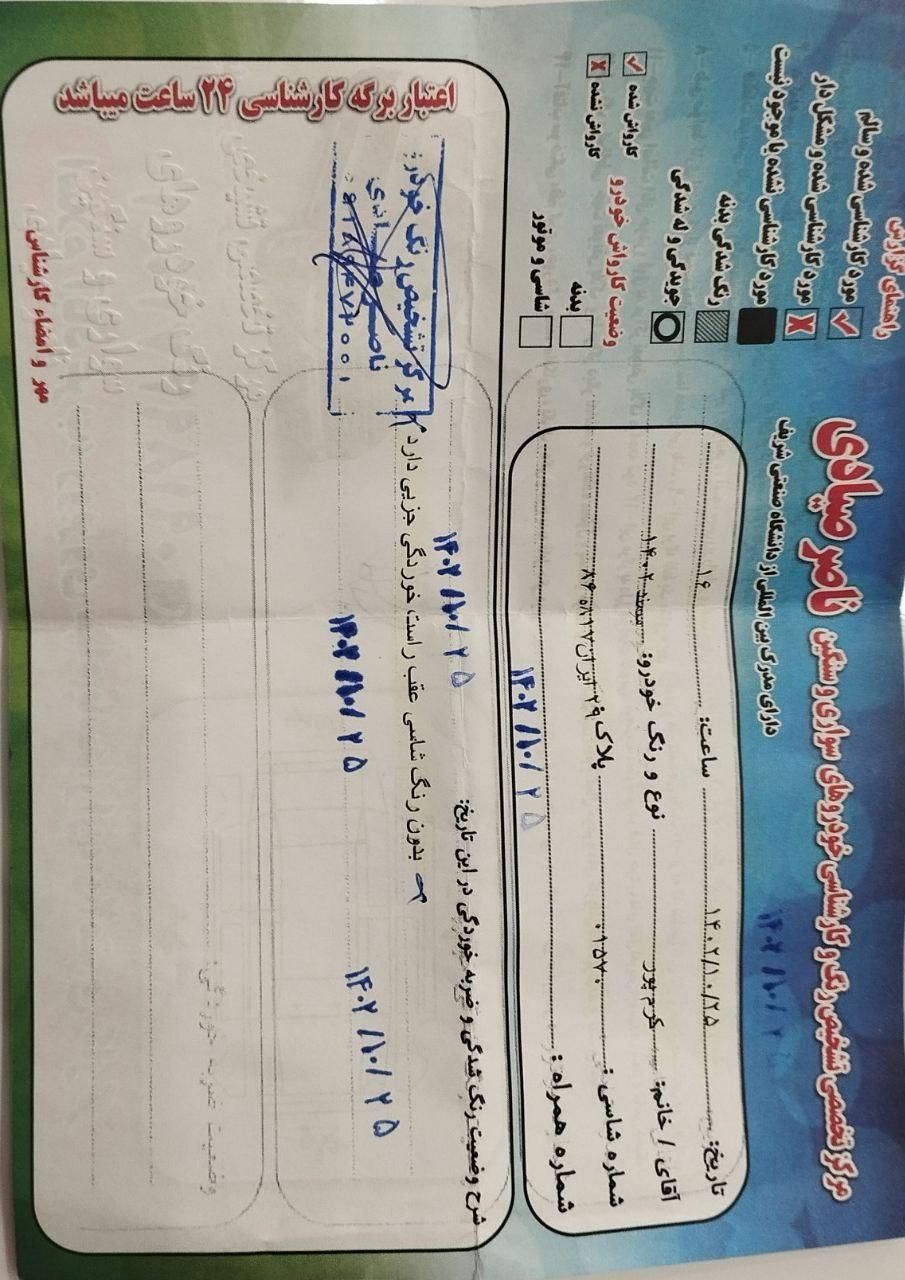 مرکز تخصصی تشخیص رنگ و کارشناسی خودروهای سواری و سنگین ناصر صیادی
دارای مدرک بین المللی از دانشگاه صنعتی شریف
۱۴۰۲/۱۰/۲
راهنمای گزارش
مورد کارشناسی شده و سالم
مورد کارشناسی شده و مشکل دار
مورد کارشناسی نشده یا موجود نیست
رنگ شدگی بدنه
خوردگی و له شدگی
وضعیت کارواش خودرو
کارواش شده
کارواش نشده
بدنه
شاسی و موتور
تاریخ: ۱۴۰۲/۱۰/۲۵ ساعت: ۱۶
آقای / خانم: کرم پور نوع و رنگ خودرو: سمند ۱۴۰۲
شماره شاسی: ۰۱۵۷۰ پلاک:
شماره همراه:
۱۴۰۲/۱۰/۲۵
شرح وضعیت رنگ شدگی و ضربه خوردگی در این تاریخ:
۱۴۰۲/۱۰/۲۵
بدون رنگ شاسی عقب راست خوردگی جزیی دارد
۱۴۰۲/۱۰/۲۵ ۱۴۰۲/۱۰/۲۵
مرکز تشخیص رنگ خودرو
ناصر صیادی
اعتبار برگه کارشناسی ۲۴ ساعت میباشد
مهر و امضاء کارشناس